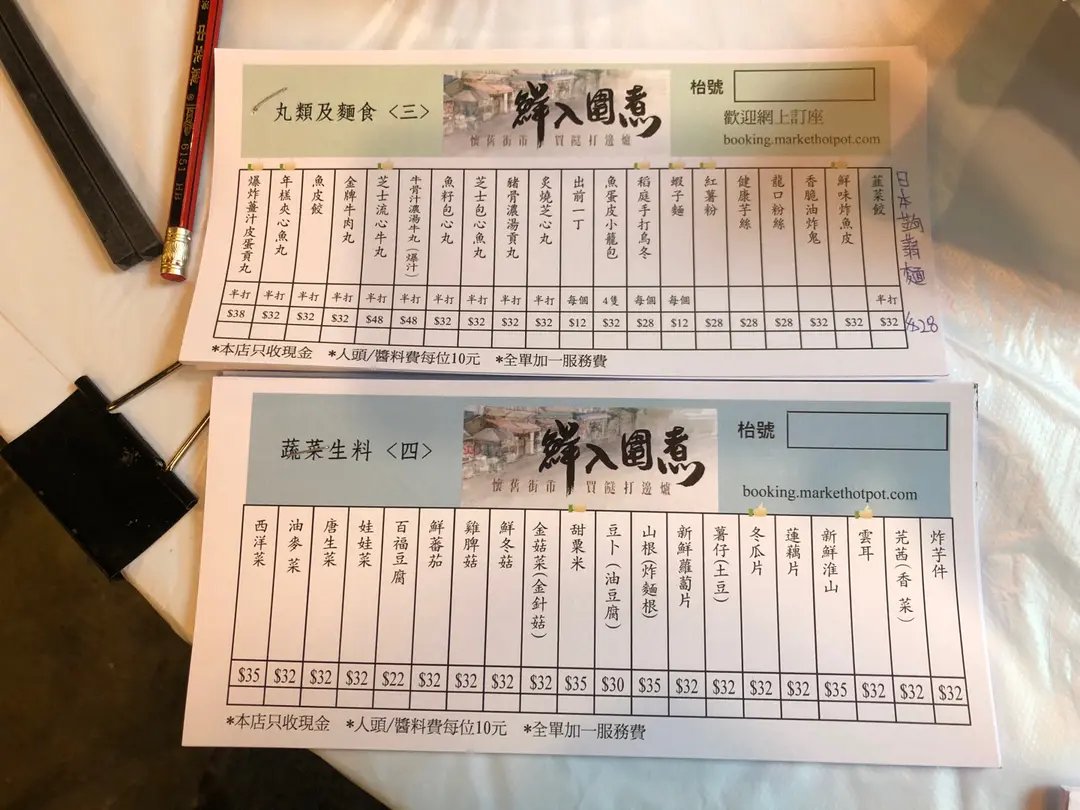 中華
6161 HB
丸類及麵食 <三>
鮮入圍煮
懷舊街市 買餸打邊爐
枱號
歡迎網上訂座
booking.markethotpot.com
爆炸薑汁皮蛋貢丸 半打 $38
年糕夾心魚丸 半打 $32
魚皮餃 半打 $32
金牌牛肉丸 半打 $32
芝士流心牛丸 半打 $48
牛骨汁濃湯牛丸(爆汁) 半打 $48
魚籽包心丸 半打 $32
芝士包心魚丸 半打 $32
豬骨濃湯貢丸 半打 $32
炙燒芝心丸 半打 $32
出前一丁 每個 $12
魚蛋皮小籠包 4隻 $32
稻庭手打烏冬 每個 $28
蝦子麵 每個 $12
紅薯粉 $28
健康芋絲 $28
龍口粉絲 $28
香脆油炸鬼 $32
鮮味炸魚皮 $32
韮菜餃 半打 $32
日本蒟蒻麵 $28
*本店只收現金 *人頭/醬料費每位10元 *全單加一服務費
蔬菜生料 <四>
鮮入圍煮
懷舊街市 買餸打邊爐
枱號
booking.markethotpot.com
西洋菜 $35
油麥菜 $32
唐生菜 $32
娃娃菜 $32
百福豆腐 $22
鮮蕃茄 $32
雞脾菇 $32
鮮冬菇 $32
金菇菜(金針菇) $32
甜粟米 $35
豆卜(油豆腐) $30
山根(炸麵根) $35
新鮮蘿蔔片 $32
薯仔(土豆) $32
冬瓜片 $32
蓮藕片 $32
新鮮淮山 $35
雲耳 $32
芫茜(香菜) $32
炸芋件 $32
*本店只收現金 *人頭/醬料費每位10元 *全單加一服務費